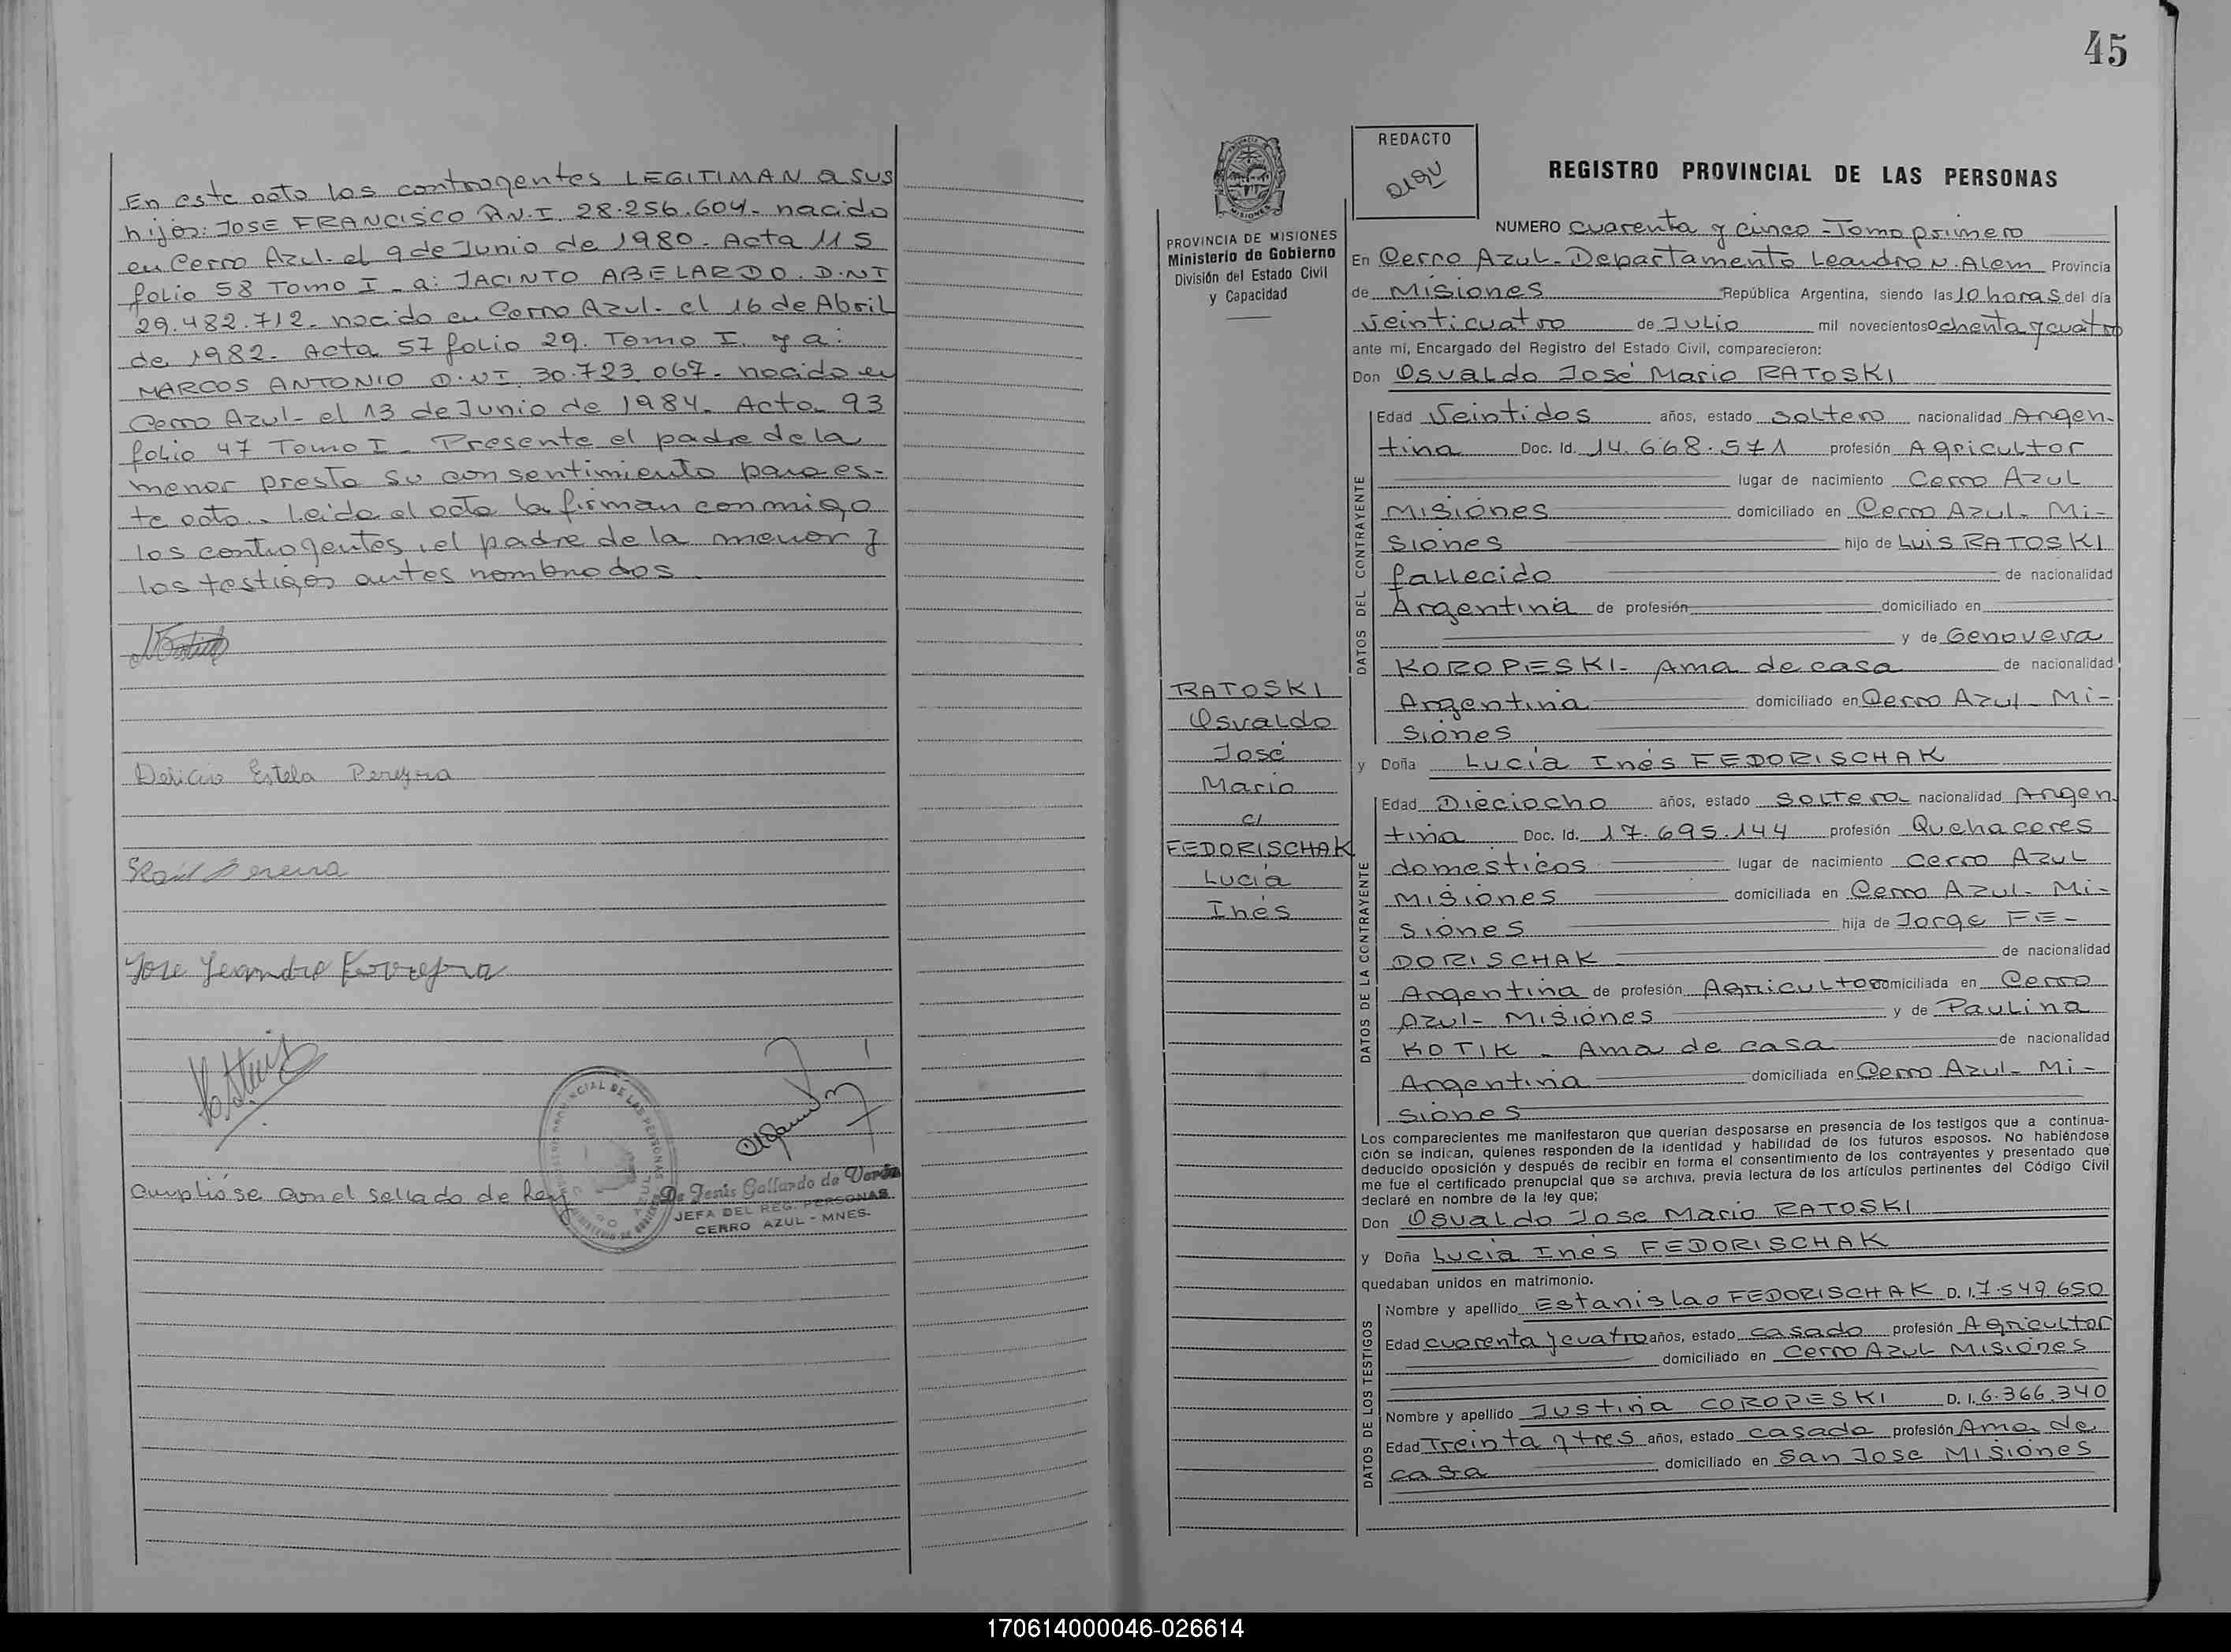 En este acto los contrayentes LEGITIMAN a sus
hijos: JOSE FRANCISCO D.N.I. 28.256.604. nacido
en Cerro Azul. el 9 de Junio de 1980. Acta 115
folio 58 Tomo I - a: JACINTO ABELARDO. D.NI
29.482.712. nacido en Cerro Azul. el 16 de Abril
de 1982. Acta 57 folio 29. Tomo I. y a:
MARCOS ANTONIO D.NI. 30.723.067. nacido en
Cerro Azul- el 13 de Junio de 1984. Acta 93
folio 47 Tomo I - Presente el padre de la
menor presta su consentimiento para es-
te acto. Leida el acta la firman conmigo
los contrayentes, el padre de la menor y
los testigos antes nombrados.
Estela Pereyra
Jose Leandro
Cumplióse con el sellado de Ley
de Jesús Gallardo de
JEFA DEL REG. PERSONAS
CERRO AZUL - MNES.
45
PROVINCIA DE MISIONES
Ministerio de Gobierno
División del Estado Civil
y Capacidad
RATOSKI
Osvaldo
José
Mario
c/
FEDORISCHAK
Lucía
Inés
REDACTO
REGISTRO PROVINCIAL DE LAS PERSONAS
NUMERO cuarenta y cinco - Tomo primero
En Cerro Azul- Departamento Leandro N. Alem Provincia
de Misiones República Argentina, siendo las 10 horas del día
veinticuatro de Julio mil novecientos ochenta y cuatro
ante mí, Encargado del Registro del Estado Civil, comparecieron:
Don Osvaldo José Mario RATOSKI
DATOS DEL CONTRAYENTE
Edad Veintidos años, estado soltero nacionalidad Argen-
tina Doc. Id. 14.668.571 profesión Agricultor
lugar de nacimiento Cerro Azul
Misiones domiciliado en Cerro Azul- Mi-
siones hijo de Luis RATOSKI
fallecido de nacionalidad
Argentina de profesión domiciliado en
y de Genoveva
KOROPESKI- Ama de casa de nacionalidad
Argentina domiciliado en Cerro Azul- Mi-
siones
y Doña Lucía Inés FEDORISCHAK
DATOS DE LA CONTRAYENTE
Edad Dieciocho años, estado soltera nacionalidad Argen
tina Doc. Id. 17.695.144 profesión Quehaceres
domesticos lugar de nacimiento Cerro Azul
Misiones domiciliada en Cerro Azul- Mi-
siones hija de Jorge FE-
DORISCHAK de nacionalidad
Argentina de profesión Agricultor domiciliada en Cerro
Azul- Misiones y de Paulina
KOTIK - Ama de casa de nacionalidad
Argentina domiciliada en Cerro Azul- Mi-
siones
Los comparecientes me manifestaron que querían desposarse en presencia de los testigos que a continua-
ción se indican, quienes responden de la identidad y habilidad de los futuros esposos. No habiéndose
deducido oposición y después de recibir en forma el consentimiento de los contrayentes y presentado que
me fue el certificado prenupcial que se archiva, previa lectura de los artículos pertinentes del Código Civil
declaré en nombre de la ley que;
Don Osvaldo Jose Mario RATOSKI
y Doña Lucía Inés FEDORISCHAK
quedaban unidos en matrimonio.
DATOS DE LOS TESTIGOS
Nombre y apellido Estanislao FEDORISCHAK D. I. 7.549.650
Edad cuarenta y cuatro años, estado casado profesión Agricultor
domiciliado en Cerro Azul Misiones
Nombre y apellido Justina COROPESKI D. I. 6.366.340
Edad Treinta y tres años, estado casada profesión Ama de
casa domiciliado en San Jose Misiones
170614000046-026614